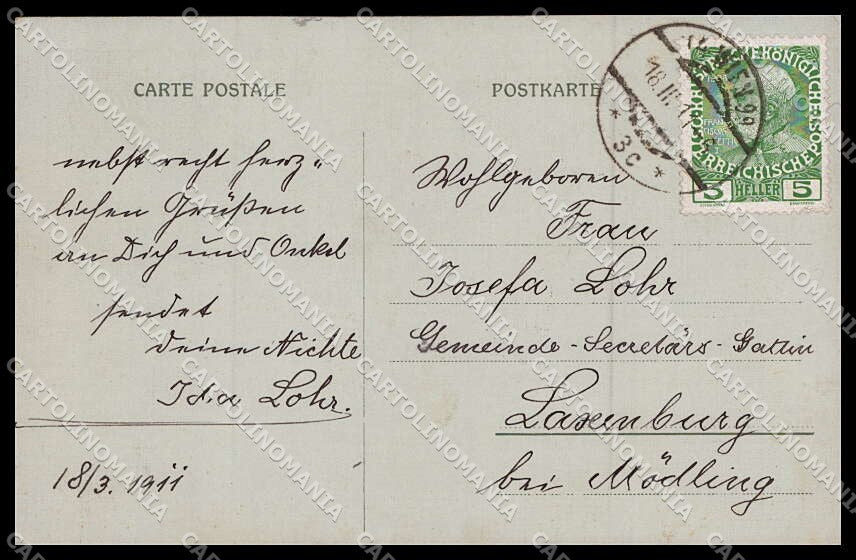 CARTE POSTALE
POSTKARTE
nebst recht herz=
lichen Grüßen
an Dich und Onkel
sendet
deine Nichte
Ida Lohr.
18/3. 1911
Wohlgeboren
Frau
Josefa Lohr
Gemeinde-Secretärs-Gattin
Laxenburg
bei Mödling
WIEN
3c
5 HELLER 5
CARTOLINOMANIA